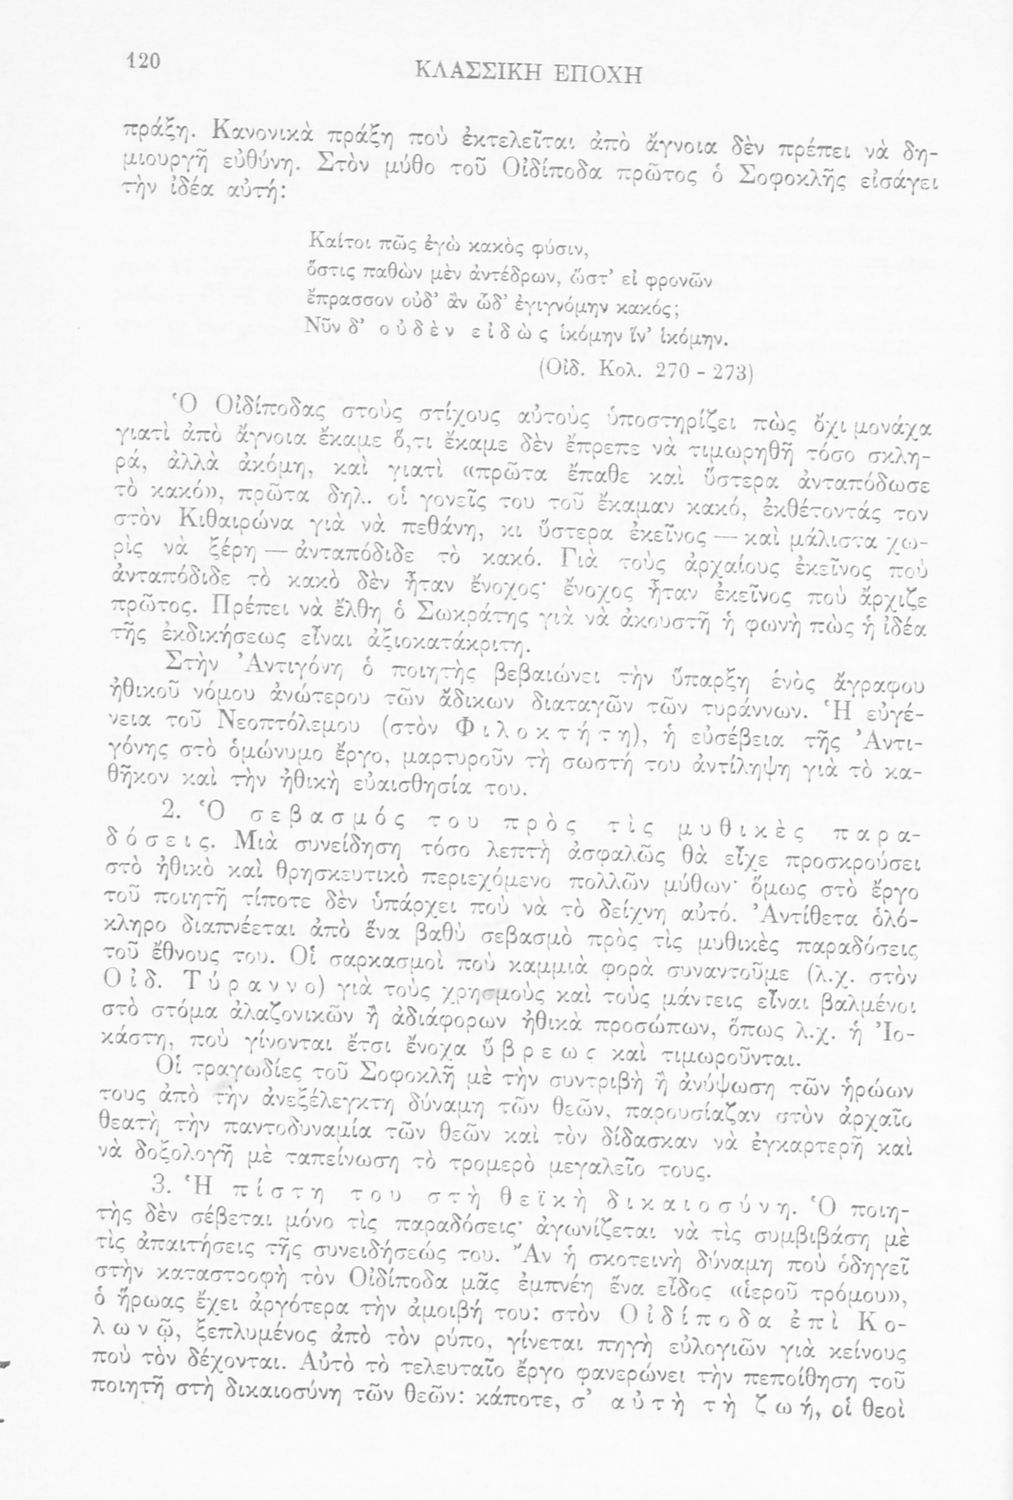 120
ΚΛΑΣΣΙΚΗ ΕΠΟΧΗ
πράξη. Κανονικὰ πράξη ποὺ ἐκτελεῖται ἀπὸ ἄγνοια δὲν πρέπει νὰ δη-
μιουργῆ εὐθύνη. Στὸν μύθο τοῦ Οἰδίποδα πρῶτος ὁ Σοφοκλῆς εἰσάγει
τὴν ἰδέα αὐτή:
Καίτοι πῶς ἐγὼ κακὸς φύσιν,
ὅστις παθὼν μὲν ἀντέδρων, ὥστ' εἰ φρονῶν
ἔπρασσον οὐδ' ἂν ὧδ' ἐγιγνόμην κακός;
Νῦν δ' οὐδὲν εἰδὼς ἱκόμην ἵν' ἱκόμην.
(Οἰδ. Κολ. 270 - 273)
Ὁ Οἰδίποδας στοὺς στίχους αὐτοὺς ὑποστηρίζει πὼς ὄχι μονάχα
γιατὶ ἀπὸ ἄγνοια ἔκαμε ὅ,τι ἔκαμε δὲν ἔπρεπε νὰ τιμωρηθῆ τόσο σκλη-
ρά, ἀλλὰ ἀκόμη, καὶ γιατὶ «πρῶτα ἔπαθε καὶ ὕστερα ἀνταπόδωσε
τὸ κακό», πρῶτα δηλ. οἱ γονεῖς του τοῦ ἔκαμαν κακό, ἐκθέτοντάς τον
στὸν Κιθαιρώνα γιὰ νὰ πεθάνη, κι ὕστερα ἐκεῖνος — καὶ μάλιστα χω-
ρὶς νὰ ξέρη — ἀνταπόδιδε τὸ κακό. Γιὰ τοὺς ἀρχαίους ἐκεῖνος ποὺ
ἀνταπόδιδε τὸ κακὸ δὲν ἦταν ἔνοχος· ἔνοχος ἦταν ἐκεῖνος ποὺ ἄρχιζε
πρῶτος. Πρέπει νὰ ἔλθη ὁ Σωκράτης γιὰ νὰ ἀκουστῆ ἡ φωνὴ πὼς ἡ ἰδέα
τῆς ἐκδικήσεως εἶναι ἀξιοκατάκριτη.
Στὴν Ἀντιγόνη ὁ ποιητὴς βεβαιώνει τὴν ὕπαρξη ἑνὸς ἄγραφου
ἠθικοῦ νόμου ἀνώτερου τῶν ἄδικων διαταγῶν τῶν τυράννων. Ἡ εὐγέ-
νεια τοῦ Νεοπτόλεμου (στὸν Φιλοκτήτη), ἡ εὐσέβεια τῆς Ἀντι-
γόνης στὸ ὁμώνυμο ἔργο, μαρτυροῦν τὴ σωστή του ἀντίληψη γιὰ τὸ κα-
θῆκον καὶ τὴν ἠθικὴ εὐαισθησία του.
2. Ὁ σεβασμός του πρὸς τὶς μυθικὲς παρα-
δόσεις. Μιὰ συνείδηση τόσο λεπτὴ ἀσφαλῶς θὰ εἶχε προσκρούσει
στὸ ἠθικὸ καὶ θρησκευτικὸ περιεχόμενο πολλῶν μύθων· ὅμως στὸ ἔργο
τοῦ ποιητῆ τίποτε δὲν ὑπάρχει ποὺ νὰ τὸ δείχνη αὐτό. Ἀντίθετα ὁλό-
κληρο διαπνέεται ἀπὸ ἕνα βαθὺ σεβασμὸ πρὸς τὶς μυθικὲς παραδόσεις
τοῦ ἔθνους του. Οἱ σαρκασμοὶ ποὺ καμμιὰ φορὰ συναντοῦμε (λ.χ. στὸν
Οἰδ. Τύραννο) γιὰ τοὺς χρησμοὺς καὶ τοὺς μάντεις εἶναι βαλμένοι
στὸ στόμα ἀλαζονικῶν ἢ ἀδιάφορων ἠθικὰ προσώπων, ὅπως λ.χ. ἡ Ἰο-
κάστη, ποὺ γίνονται ἔτσι ἔνοχα ὕβρεως καὶ τιμωροῦνται.
Οἱ τραγωδίες τοῦ Σοφοκλῆ μὲ τὴν συντριβὴ ἢ ἀνύψωση τῶν ἡρώων
τους ἀπὸ τὴν ἀνεξέλεγκτη δύναμη τῶν θεῶν, παρουσίαζαν στὸν ἀρχαῖο
θεατὴ τὴν παντοδυναμία τῶν θεῶν καὶ τὸν δίδασκαν νὰ ἐγκαρτερῆ καὶ
νὰ δοξολογῆ μὲ ταπείνωση τὸ τρομερὸ μεγαλεῖο τους.
3. Ἡ πίστη του στὴ θεϊκὴ δικαιοσύνη. Ὁ ποιη-
τὴς δὲν σέβεται μόνο τὶς παραδόσεις· ἀγωνίζεται νὰ τὶς συμβιβάση μὲ
τὶς ἀπαιτήσεις τῆς συνειδήσεώς του. Ἂν ἡ σκοτεινὴ δύναμη ποὺ ὁδηγεῖ
στὴν καταστροφὴ τὸν Οἰδίποδα μᾶς ἐμπνέη ἕνα εἶδος «ἱεροῦ τρόμου»,
ὁ ἥρωας ἔχει ἀργότερα τὴν ἀμοιβή του: στὸν Οἰδίποδα ἐπὶ Κο-
λωνῷ, ξεπλυμένος ἀπὸ τὸν ρύπο, γίνεται πηγὴ εὐλογιῶν γιὰ κείνους
ποὺ τὸν δέχονται. Αὐτὸ τὸ τελευταῖο ἔργο φανερώνει τὴν πεποίθηση τοῦ
ποιητῆ στὴ δικαιοσύνη τῶν θεῶν: κάποτε, σ' αὐτὴ τὴ ζωή, οἱ θεοὶ